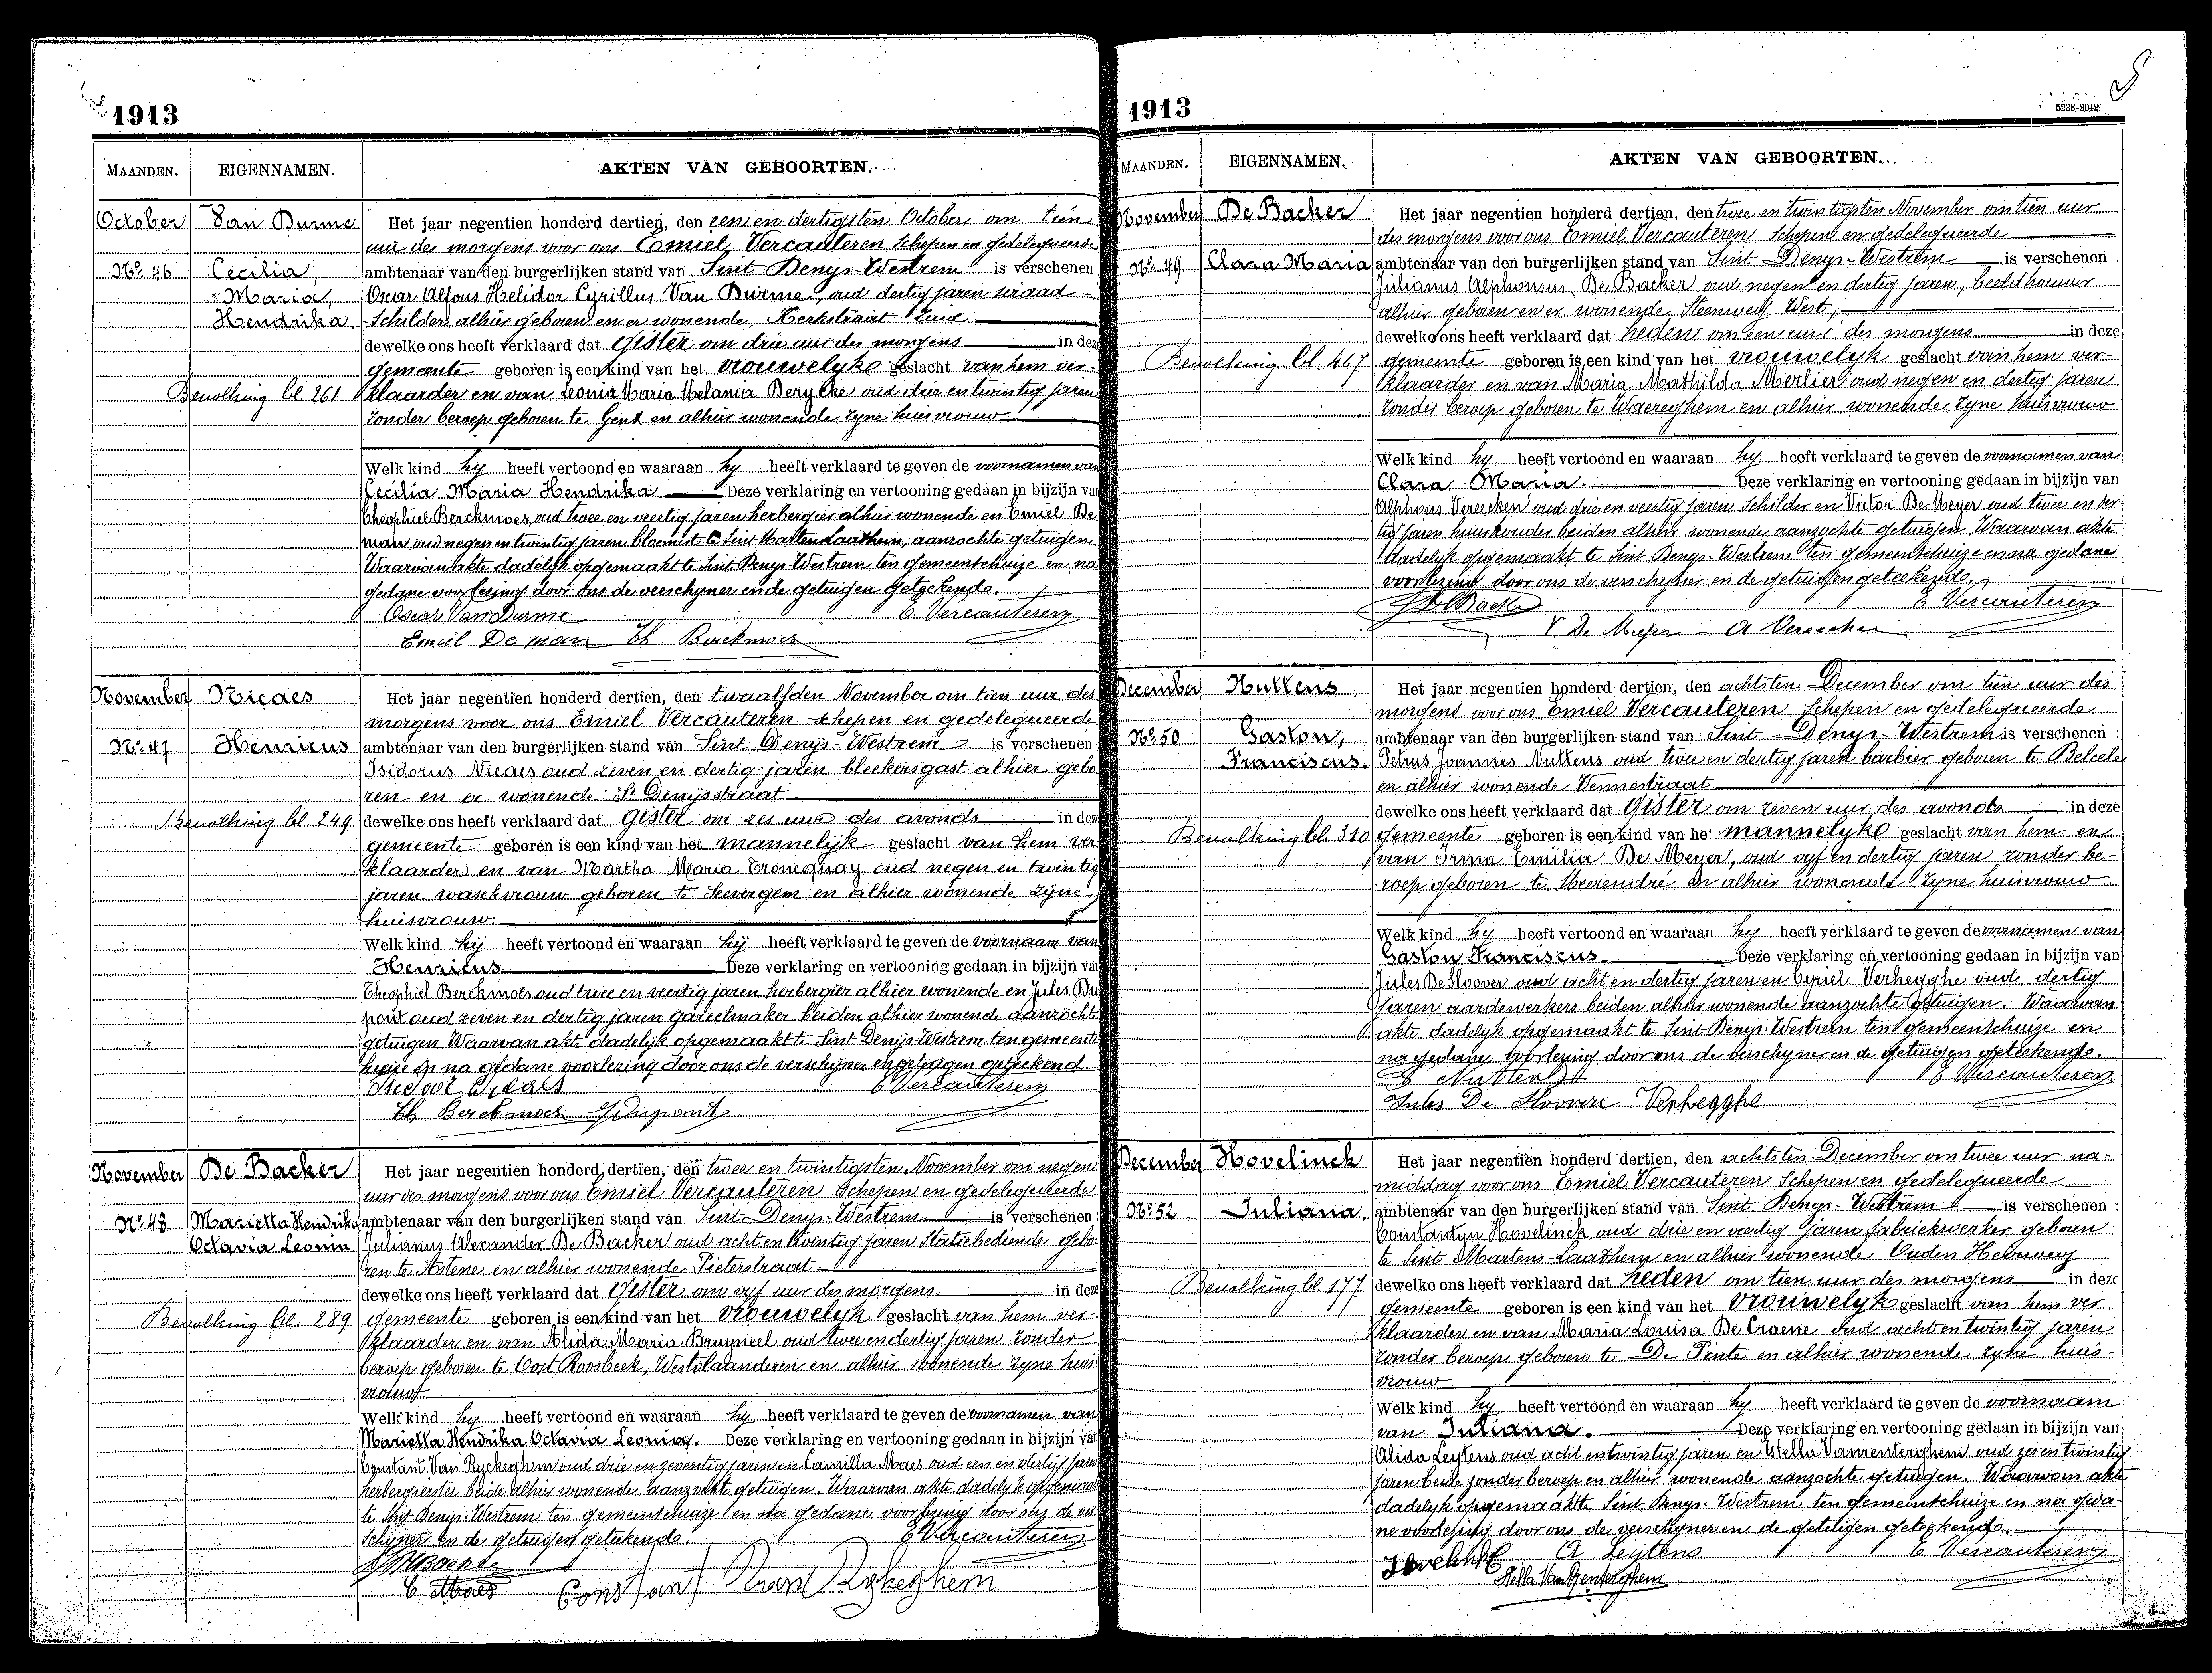 1913
MAANDEN. EIGENNAMEN. AKTEN VAN GEBOORTEN.
October Van Durme Het jaar negentien honderd dertien, den een en dertigsten October om tien
uur des morgens voor ons Emiel Vercauteren Schepen en gedelegueerde
No. 46 Cecilia, ambtenaar van den burgerlijken stand van Sint Denys-Westrem is verschenen
Maria, Oscar Alfons Helidor Cyrillus Van Durme, oud dertig jaren sieraad-
Hendrika. Schilder alhier geboren en er wonende, Kerkstraat Zuid
dewelke ons heeft verklaard dat Gister om drie uur des morgens in deze
gemeente geboren is een kind van het vrouwelyke geslacht van hem ver-
Bevolking bl. 261 klaarder en van Leonia Maria Melania oud drie en twintig jaren
zonder beroep geboren te Gent en alhier wonende zyne huisvrouw
Welk kind hy heeft vertoond en waaraan hy heeft verklaard te geven de voornamen van
Cecilia Maria Hendrika Deze verklaring en vertooning gedaan in bijzijn van
Theophiel Berckmoes, oud twee en veertig jaren herbergier alhier wonende en Emiel De
man oud negen en twintig jaren bloemist te Sint Martens Laathem, aanzochte getuigen.
Waarvan akte dadelyk opgemaakt te Sint Denys-Westrem ten gemeentehuize en na
gedane voorlezing door ons de verschyner en de getuigen geteekende.
Oscar Van Durme E Vercauteren
Emiel De man Th Berckmoes
November Nicaes Het jaar negentien honderd dertien, den twaalfden November om tien uur des
morgens voor ons Emiel Vercauteren schepen en gedelegueerde
No. 47 Henricus ambtenaar van den burgerlijken stand van Sint Denijs-Westrem is verschenen
Isidorus Nicaes oud zeven en dertig jaren bleekersgast alhier gebo-
ren en er wonende St Denijsstraat
Bevolking bl. 249 dewelke ons heeft verklaard dat gister om zes uur des avonds in deze
gemeente geboren is een kind van het mannelijk geslacht van hem ver-
klaarder en van Martha Maria Troncquay oud negen en twintig
jaren waschvrouw geboren te Seevergem en alhier wonende zijne
huisvrouw
Welk kind hij heeft vertoond en waaraan hij heeft verklaard te geven de voornaam van
Henricus Deze verklaring en vertooning gedaan in bijzijn van
Theophiel Berckmoes oud twee en veertig jaren herbergier alhier wonende en Jules Du
pont oud zeven en dertig jaren gareelmaker beiden alhier wonende aanzochte
getuigen Waarvan akte dadelijk opgemaakt te Sint Denijs-Westrem ten gemeente
huize en na gedane voorlezing door ons de verschijner en getuigen geteekend
Isidoor Nicaes E Vercauteren
Th Berckmoes J Dupont
November De Backer Het jaar negentien honderd dertien, den twee en twintigsten November om negen
uur des morgens voor ons Emiel Vercauteren Schepen en gedelegueerde
No. 48 Marietta Hendrika ambtenaar van den burgerlijken stand van Sint-Denys-Westrem is verschenen
Octavia Leonia Julianus Alexander De Backer oud acht en twintig jaren Statiebediende gebo-
ren te Astene en alhier wonende Pieterstraat
dewelke ons heeft verklaard dat Gister om vyf uur des morgens in deze
Bevolking bl. 289 gemeente geboren is een kind van het vrouwelyk geslacht van hem ver-
klaarder en van Alida Maria Bruyneel oud twee en dertig jaren zonder
beroep geboren te Oost Roosbeek, Westvlaanderen en alhier wonende zyne huis-
vrouw
Welk kind hy heeft vertoond en waaraan hy heeft verklaard te geven de voornamen van
Mariella Hendrika Octavia Leonia. Deze verklaring en vertooning gedaan in bijzijn van
Constant Van Ryckeghem oud drie en zeventig jaren en Camilla Maes oud een en dertig jaren
herbergierster beide alhier wonende aanzochte getuigen. Waarvan akte dadelyk opgemaakt
te Sint Denys-Westrem ten gemeentehuize en na gedane voorlezing door ons de ver
schyner en de getuigen geteekende. E Vercauteren
C. Maes Constant Van Rykeghem
1913
5238-2042
MAANDEN. EIGENNAMEN. AKTEN VAN GEBOORTEN.
November De Backer Het jaar negentien honderd dertien, den twee en twintigsten November om tien uur
des morgens voor ons Emiel Vercauteren Schepen en gedelegueerde
No. 49 Clara Maria ambtenaar van den burgerlijken stand van Sint-Denys-Westrem is verschenen
Julianus Alphonsus De Backer oud negen en dertig jaren, beeldhouwer
alhier geboren en er wonende Steenweg West,
dewelke ons heeft verklaard dat heden om een uur des morgens in deze
Bevolking bl. 467 gemeente geboren is een kind van het vrouwelyk geslacht van hem ver-
klaarder en van Maria Mathilda Merlier oud negen en dertig jaren
zonder beroep geboren te Waereghem en alhier wonende zyne huisvrouw
Welk kind hy heeft vertoond en waaraan hy heeft verklaard te geven de voornamen van
Clara Maria. Deze verklaring en vertooning gedaan in bijzijn van
Alphons Vereecken oud drie en veertig jaren Schilder en Victor De Meyer oud twee en der
tig jaren huurhouder beiden alhier wonende aanzochte getuigen. Waarvan akte
dadelyk opgemaakt te Sint Denys-Westrem ten gemeentehuize en na gedane
voorlezing door ons de verschyner en de getuigen geteekende.
E Vercauteren
V De Meyer A Vereecken
December Nuttens Het jaar negentien honderd dertien, den achtsten December om tien uur des
morgens voor ons Emiel Vercauteren Schepen en gedelegueerde
No. 50 Gaston, ambtenaar van den burgerlijken stand van Sint-Denys-Westrem is verschenen :
Franciscus. Petrus Joannes Nuttens oud twee en dertig jaren barbier geboren te Belcele
en alhier wonende Vennestraat
dewelke ons heeft verklaard dat Gister om zeven uur des avonds in deze
Bevolking bl. 310 gemeente geboren is een kind van het mannelyke geslacht van hem en
van Irma Emilia De Meyer, oud vyf en dertig jaren zonder be-
roep geboren te Meerendré en alhier wonende zyne huisvrouw
Welk kind hy heeft vertoond en waaraan hy heeft verklaard te geven de voornamen van
Gaston Franciscus. Deze verklaring en vertooning gedaan in bijzijn van
Jules De Sloover oud acht en dertig jaren en Cyriel Verhegghe oud dertig
jaren aardewerkers beiden alhier wonende aanzochte getuigen. Waarvan
akte dadelyk opgemaakt te Sint Denys-Westrem ten gemeentehuize en
na gedane voorlezing door ons de verschyner en de getuigen geteekende.
Nuttens E Vercauteren
Jules De Sloover Verhegghe
December Hovelinck Het jaar negentien honderd dertien, den achtsten December om twee uur na-
middag voor ons Emiel Vercauteren Schepen en gedelegueerde
No. 52 Juliana. ambtenaar van den burgerlijken stand van Sint Denys-Westrem is verschenen :
Constantyn Hovelinck oud drie en veertig jaren fabriekwerker geboren
te Sint Martens-Laathem en alhier wonende Ouden Heirweg
Bevolking bl. 177 dewelke ons heeft verklaard dat heden om tien uur des morgens in deze
gemeente geboren is een kind van het vrouwelyk geslacht van hem ver
klaarder en van Maria Louisa De Craene oud acht en twintig jaren
zonder beroep geboren te De Pinte en alhier wonende zyne huis-
vrouw
Welk kind hy heeft vertoond en waaraan hy heeft verklaard te geven de voornaam
van Juliana. Deze verklaring en vertooning gedaan in bijzijn van
Alida Leytens oud acht en twintig jaren en Stella Vanrenterghem oud zes en twintig
jaren beide zonder beroep en alhier wonende aanzochte getuigen. Waarvan akte
dadelyk opgemaakt te Sint Denys-Westrem ten gemeentehuize en na geda-
ne voorlezing door ons de verschyner en de getuigen geteekende.
A Leytens E Vercauteren
Stella Van Renterghem